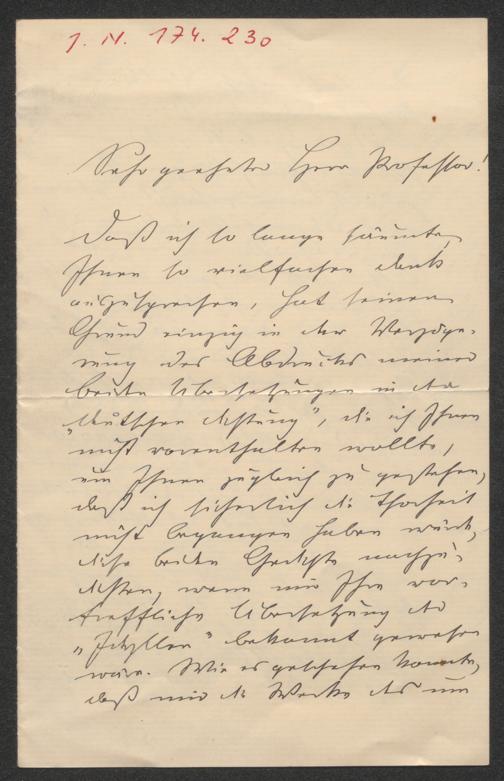 J. N. 174.230
Sehr geehrter Herr Professor!
Daß ich so lange säumte,
Ihnen so vielfachen Dank
auszusprechen, hat seinen
Grund einzig in der Verzöge-
rung des Abdrucks meiner
beiden Übersetzungen in der
„Deutschen Dichtung", die ich Ihnen
nicht vorenthalten wollte,
um Ihnen zugleich zu gestehen,
daß ich sicherlich die Thorheit
nicht begangen haben würde,
diese beiden Gedichte nachzu-
dichten, wenn mir Ihre vor-
treffliche Übersetzung der
„Idyllen" bekannt gewesen
wäre. Wie es geschehen konnte,
daß mir die Werke des um